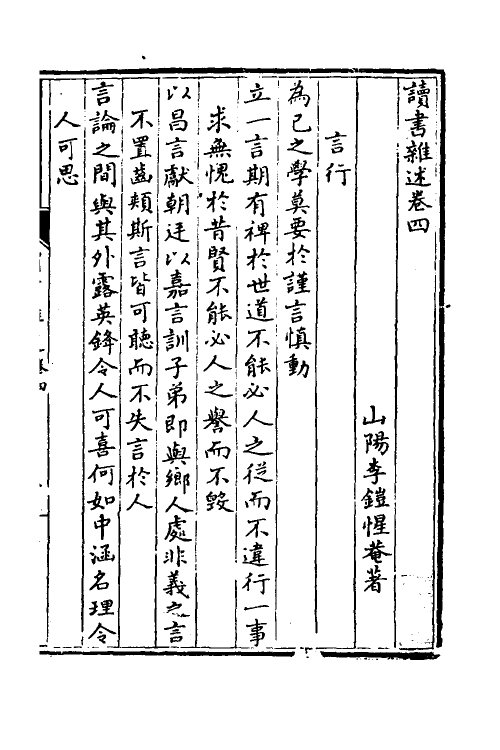 讀書雜述卷四
山陽李鎧惺菴著
言行
為己之學莫要於謹言慎動
立一言期有裨於世道不能必人之從而不違行一事
求無愧於昔賢不能必人之譽而不毀
以昌言獻朝廷以嘉言訓子弟即與鄉人處非義之言
不置齒頰斯言皆可聽而不失言於人
言論之間與其外露英鋒令人可喜何如中涵名理令
人可思